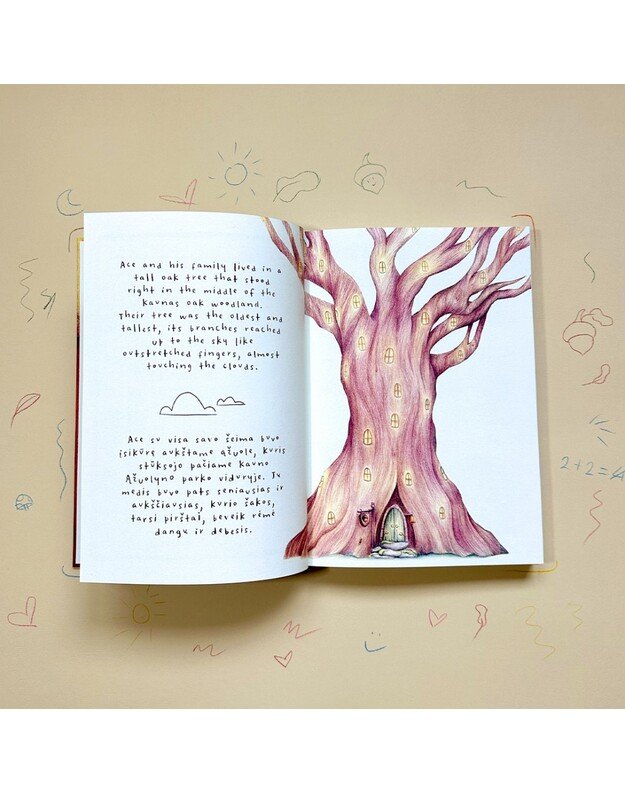 Ace and his family lived in a
tall oak tree that stood
right in the middle of the
Kaunas oak woodland.
Their tree was the oldest and
tallest, its branches reached
up to the sky like
outstretched fingers, almost
touching the clouds.
Ace su visa savo šeima buvo
įsikūrę aukštame ąžuole, kuris
stūksojo pačiame Kauno
Ąžuolyno parko viduryje. Jų
medis buvo pats seniausias ir
aukščiausias, kurio šakos,
tarsi pirštai, beveik rėmė
dangų ir debesis.
2+2=4